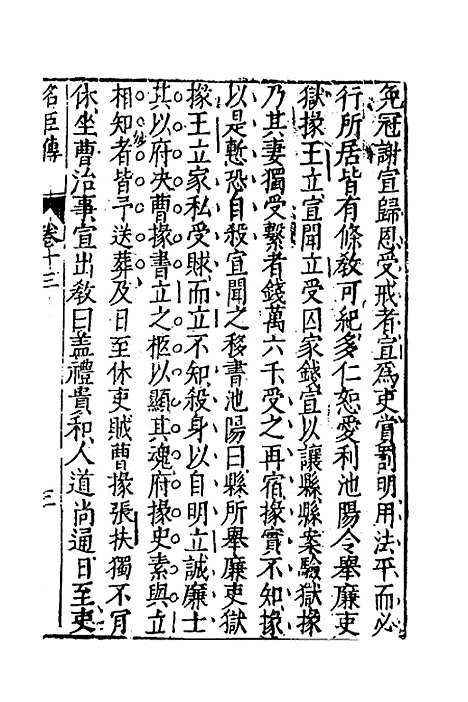 免冠謝宣歸恩受戒者宣爲吏賞罰明用法平而必
行所居皆有條教可紀多仁恕愛利池陽令舉廉吏
獄掾王立宣聞立受囚家錢宣以讓縣縣案驗獄掾
乃其妻獨受繫者錢萬六千受之再宿掾實不知掾
以是慙恐自殺宣聞之移書池陽曰縣所舉廉吏獄
掾王立家私受賕而立不知殺身以自明立誠廉士
其以府决曹掾書立之柩以顯其魂府掾史素與立
相知者皆予送葬及日至休吏賊曹掾張扶獨不肎
休坐曹治事宣出教曰盖禮貴和人道尚通日至吏
名臣傳
卷十三
三